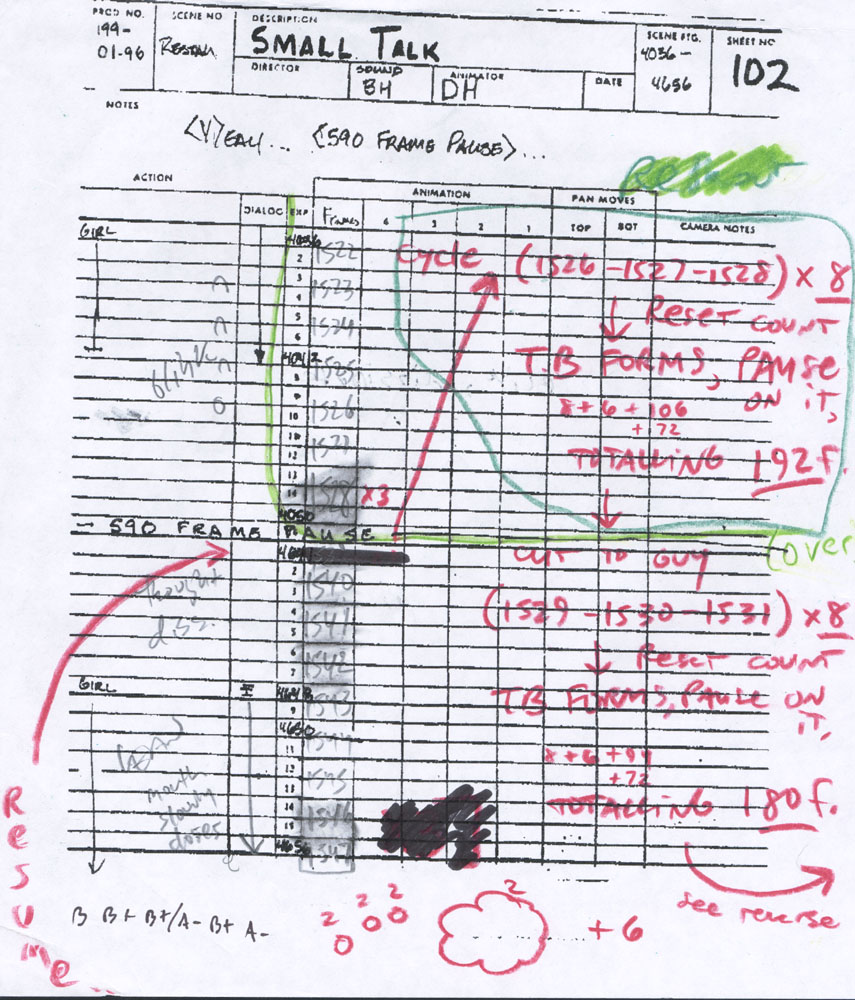 PROD NO. SCENE NO DESCRIPTION SCENE FTG. SHEET NO
199-
01-96 SMALL TALK 4036 -
4656 102
DIRECTOR SOUND ANIMATOR DATE
BH DH
NOTES
<Y>EAH... <590 FRAME PAUSE>...
ACTION ANIMATION PAN MOVES
DIALOG EXP FRAMES 4 3 2 1 TOP BOT CAMERA NOTES
GIRL
4036 1522 cycle (1526-1527-1528) x 8
2
3 1523
A
4 Reset count
5 1524
A
6
4042 1525 T.B FORMS, PAUSE
A
8 ON it,
9
O 10 1526 8 + 6 + 106
+ 72
12 1527
13 TOTALLING 192f.
14 1528 x3
4050
- 590 FRAME PAUSE
4641 CUT TO GUY (over
2 1540
thought
3 (1529-1530-1531) x 8
diss.
4 1541
5
6 1542 Reset count
7
GIRL 4648 1543 TB FORMS, PAUSE ON
9 it,
4650 1544
11 8 + 6 + 94
12 + 72
13 1545
mouth
14 1546 TOTALLING 180f.
slowly
15
closes
4656 1547
see reverse
B B+ B+/A- B+ A-
2 2 2 2 + 6
RESUME...